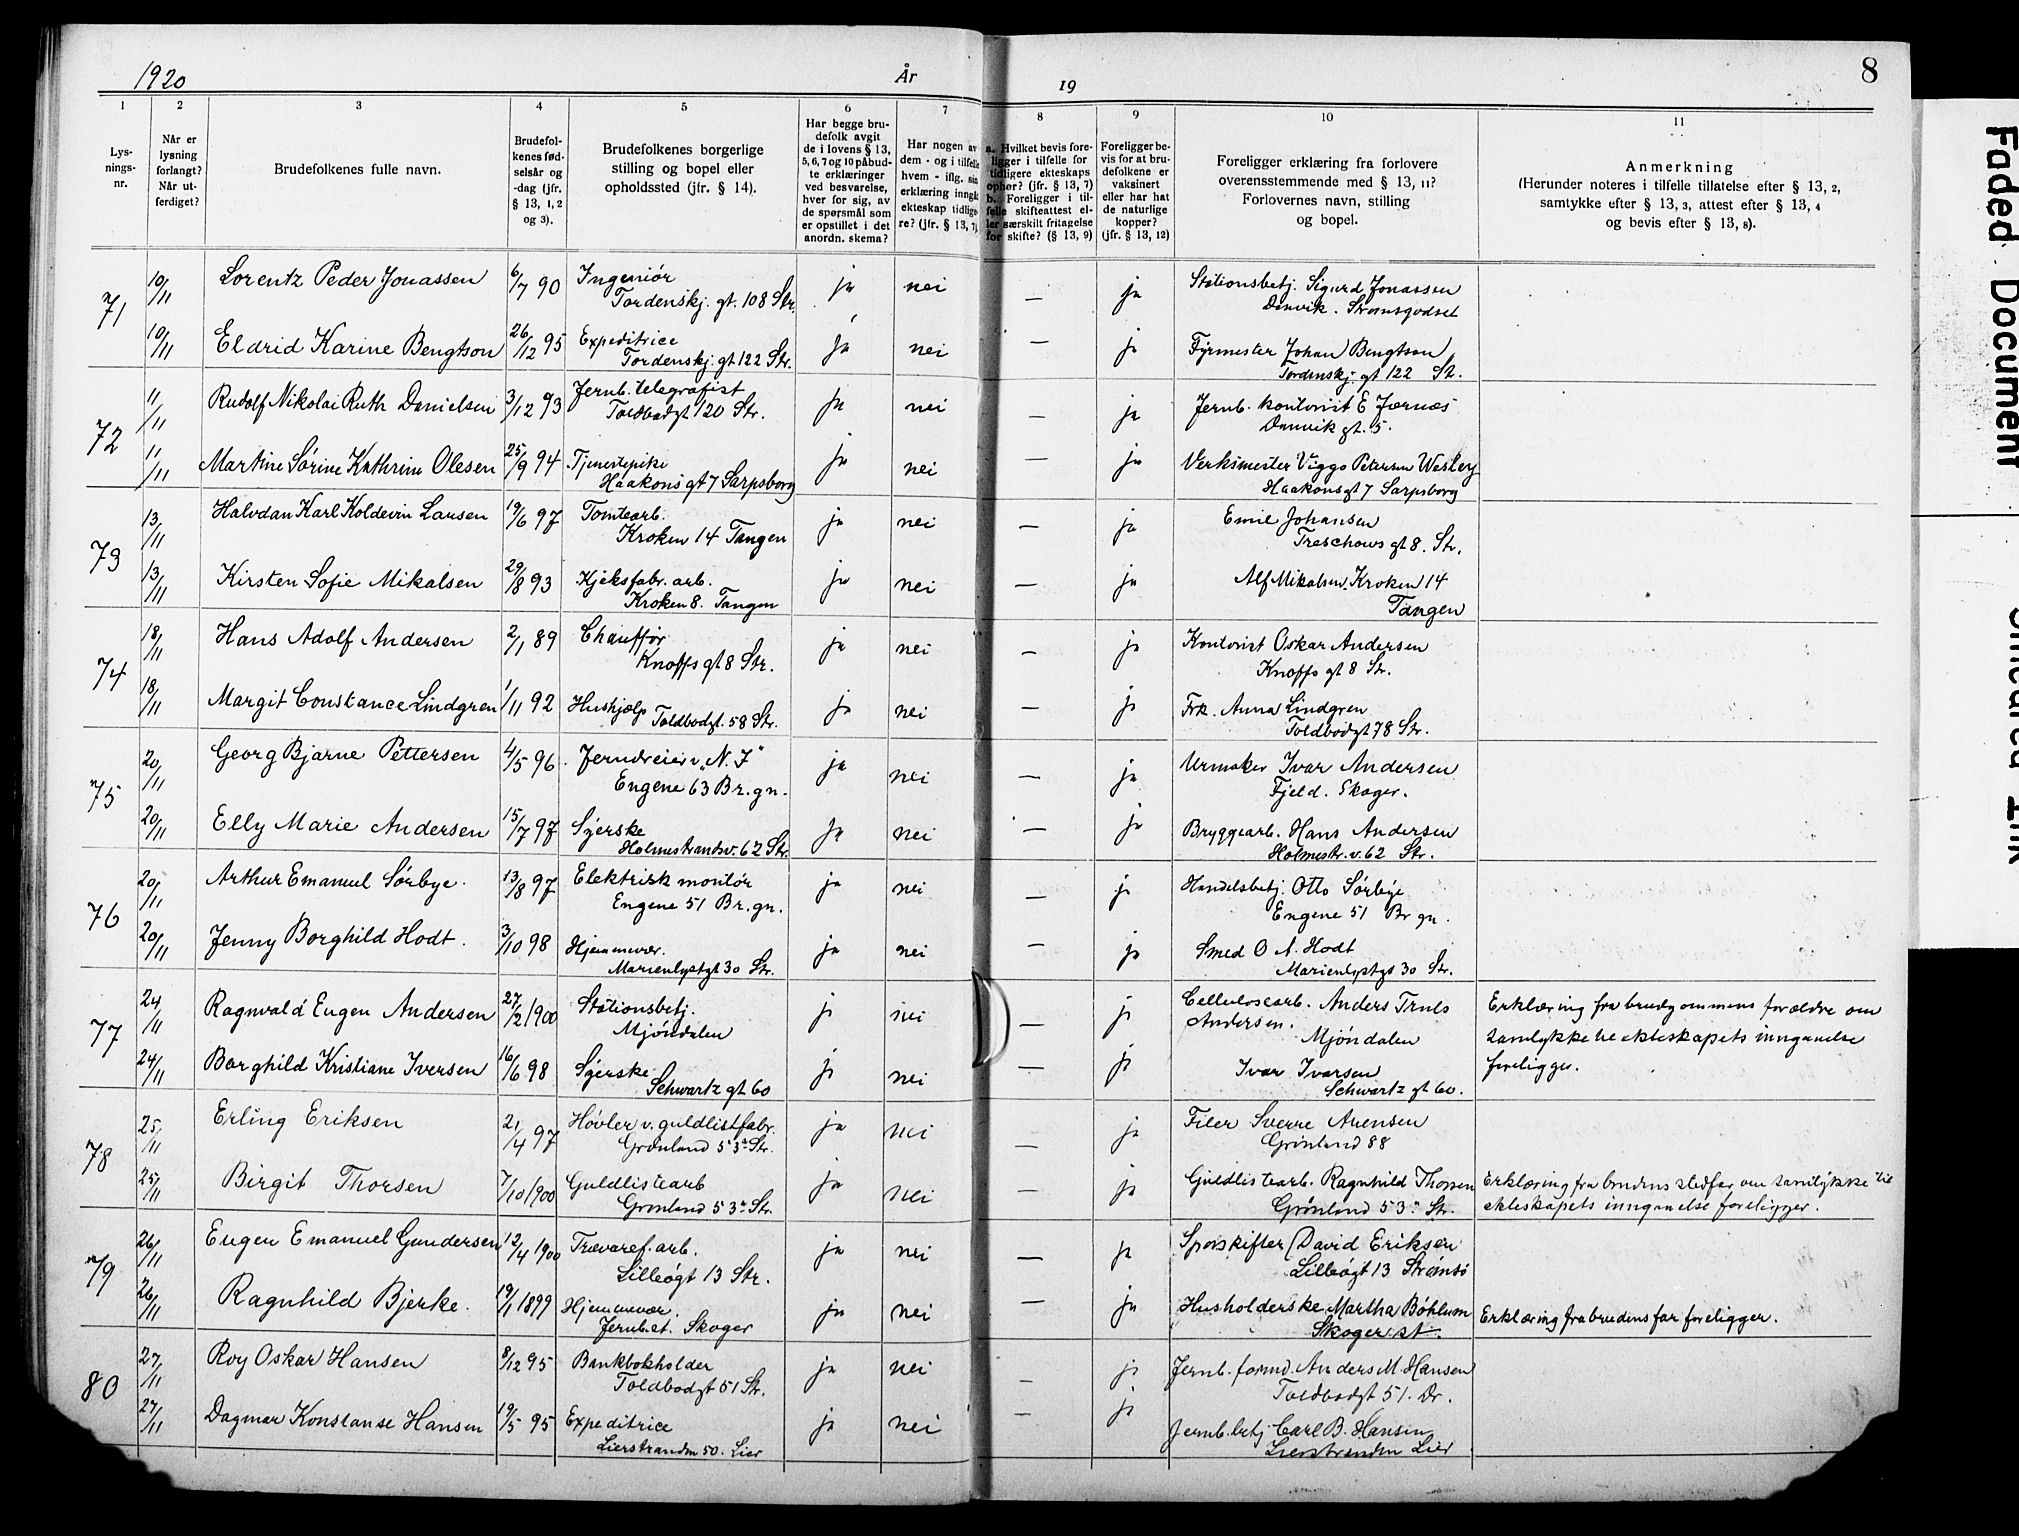 1920 År 19 8
1 2 3 4 5 6 7 8 9 10 11
Lys-
nings-
nr.
Når er
lysning
forlangt?
Når ut-
ferdiget?
Brudefolkenes fulle navn.
Brudefol-
kenes fød-
selsår og
-dag (jfr.
§ 13, 1, 2
og 3).
Brudefolkenes borgerlige
stilling og bopel eller
opholdssted (jfr. § 14).
Har begge bru-
defolk avgit
de i lovens § 13,
5, 6, 7 og 10 påbud-
te erklæringer
ved besvarelse,
hver for sig, av
de spørsmål som
er opstillet i det
anordn. skema?
Har nogen av
dem - og i tilfelle
hvem - iflg. sin
erklæring inngåt
ekteskap tidlige-
re? (jfr. § 13, 7)
a. Hvilket bevis fore-
ligger i tilfelle for
tidligere ekteskaps
ophør? (jfr. § 13, 7)
b. Foreligger i til-
felle skifteattest el-
ler særskilt fritagelse
for skifte? (§ 13, 9)
Foreligger be-
vis for at bru-
defolkene er
vaksinert
eller har hat
de naturlige
kopper?
(jfr. § 13, 12)
Foreligger erklæring fra forlovere
overensstemmende med § 13, 11?
Forlovernes navn, stilling
og bopel.
Anmerkning
(Herunder noteres i tilfelle tillatelse efter § 13, 2,
samtykke efter § 13, 3, attest efter § 13, 4
og bevis efter § 13, 8).
71 10/11 Lorentz Peder Jonassen 6/7 90 Ingeniør ja nei — ja Stationsbetj. Sigurd Jonassen
Tordenskj. gt. 108 Str. Danvik. Strømsgodset
10/11 Eldrid Karine Bengtson 26/12 95 Expeditrice ja nei — ja Fyrmester Johan Bengtson
Tordenskj. gt 122 Str. Tordenskj. gt 122 St.
72 11/11 Rudolf Nikolai Ruth Danielsen 3/12 93 Jernb. telegrafist ja nei — ja Jernb. kontorist E Jærnæs
Toldbodgt 120 Str. Danvik gt. 5.
11/11 Martine Sørine Kathrine Olesen 25/9 94 Tjenestepike ja nei — ja Verksmester Viggo Petersen Wesley
Haakons gt 7 Sarpsborg Haakons gt 7 Sarpsborg
73 13/11 Halvdan Karl Koldevin Larsen 19/6 97 Tomtearb. ja nei — ja Emil Johansen
Kroken 14 Tangen Treschows gt 8. Str.
13/11 Kirsten Sofie Mikalsen 29/8 93 Kjeksfabr. arb. ja nei — ja Alf Mikalsen, Kroken 14
Kroken 8. Tangen Tangen
74 18/11 Hans Adolf Andersen 2/1 89 Chauffør ja nei — ja Kontorist Oskar Andersen
Knoffs gt 8 Str. Knoffs gt 8 Str.
18/11 Margit Constance Lindgren 1/11 92 Hushjælp ja nei — ja Frk. Anna Lindgren
Toldbodgt. 58 Str. Toldbodgt 78 Str.
75 20/11 Georg Bjarne Pettersen 4/5 96. Jerndreier v. „N. J" ja nei — ja Urmaker Ivar Andersen
Engene 63 Br. gn. Fjeld. Skoger.
20/11 Elly Marie Andersen 15/7 97 Syerske ja nei — ja Bryggearb. Hans Andersen
Holmestrandsv. 62 Str. Holmestr. v. 62 Str.
76 20/11 Arthur Emanuel Sørbye. 13/8 97 Elektrisk montør ja nei — ja Handelsbetj. Otto Sørbye
Engene 51 Br. gn. Engene 51 Br gn.
20/11 Jenny Borghild Hodt. 3/10 98 Hjemmevær. ja nei — ja Smed O A. Hodt
Marienlystgt 30 Str. Marienlystgt 30 Str.
77 24/11 Ragnvald Eugen Andersen 27/2 1900 Stationsbetj. ja nei — ja Cellulosearb. Anders Truls Erklæring fra brudgommens forældre om
Mjøndalen Andersen. Mjøndalen samtykke til ekteskapets inngaaelse
24/11 Borghild Kristiane Iversen 16/6 98 Syerske ja nei — ja Ivar Iversen foreligger.
Schwartz gt 60 Schwartz gt 60.
78 25/11 Erling Eriksen 21/4 97 Høvler v. guldlistfabr. ja nei — ja Filer Sverre Auensen
Grønland 53a Str. Grønland 88
25/11 Birgit Thorsen 7/10 1900 Guldlistearb ja nei — ja Guldlistearb. Ragnhild Thorsen Erklæring fra brudens stedfar om samtykke til
Grønland 53a Str. Grønland 53a Str. ekteskapets inngaaelse foreligger.
79 26/11 Eugen Emanuel Gundersen 12/4 1900 Trævaref. arb. ja nei — ja Sporskifter David Eriksen
Lilleøgt 13 Str. Lilleøgt 13 Strømsø
26/11 Ragnhild Bjerke. 19/1 1899 Hjemmevær. ja nei — ja Husholderske Martha Bøhlum Erklæring fra brudens far foreligger.
Jernb. st. Skoger Skoger st.
80 27/11 Roy Oskar Hansen 8/12 95 Bankbokholder ja nei — ja Jernb. formd. Anders M. Hansen
Toldbodgt 51 Str. Toldbodgt 51. Dr.
27/11 Dagmar Konstanse Hansen 19/5 95 Expeditrice ja nei — ja Jernb. betj Carl B. Hansen
Lierstranden 50. Lier Lierstranden Lier
Faded Document